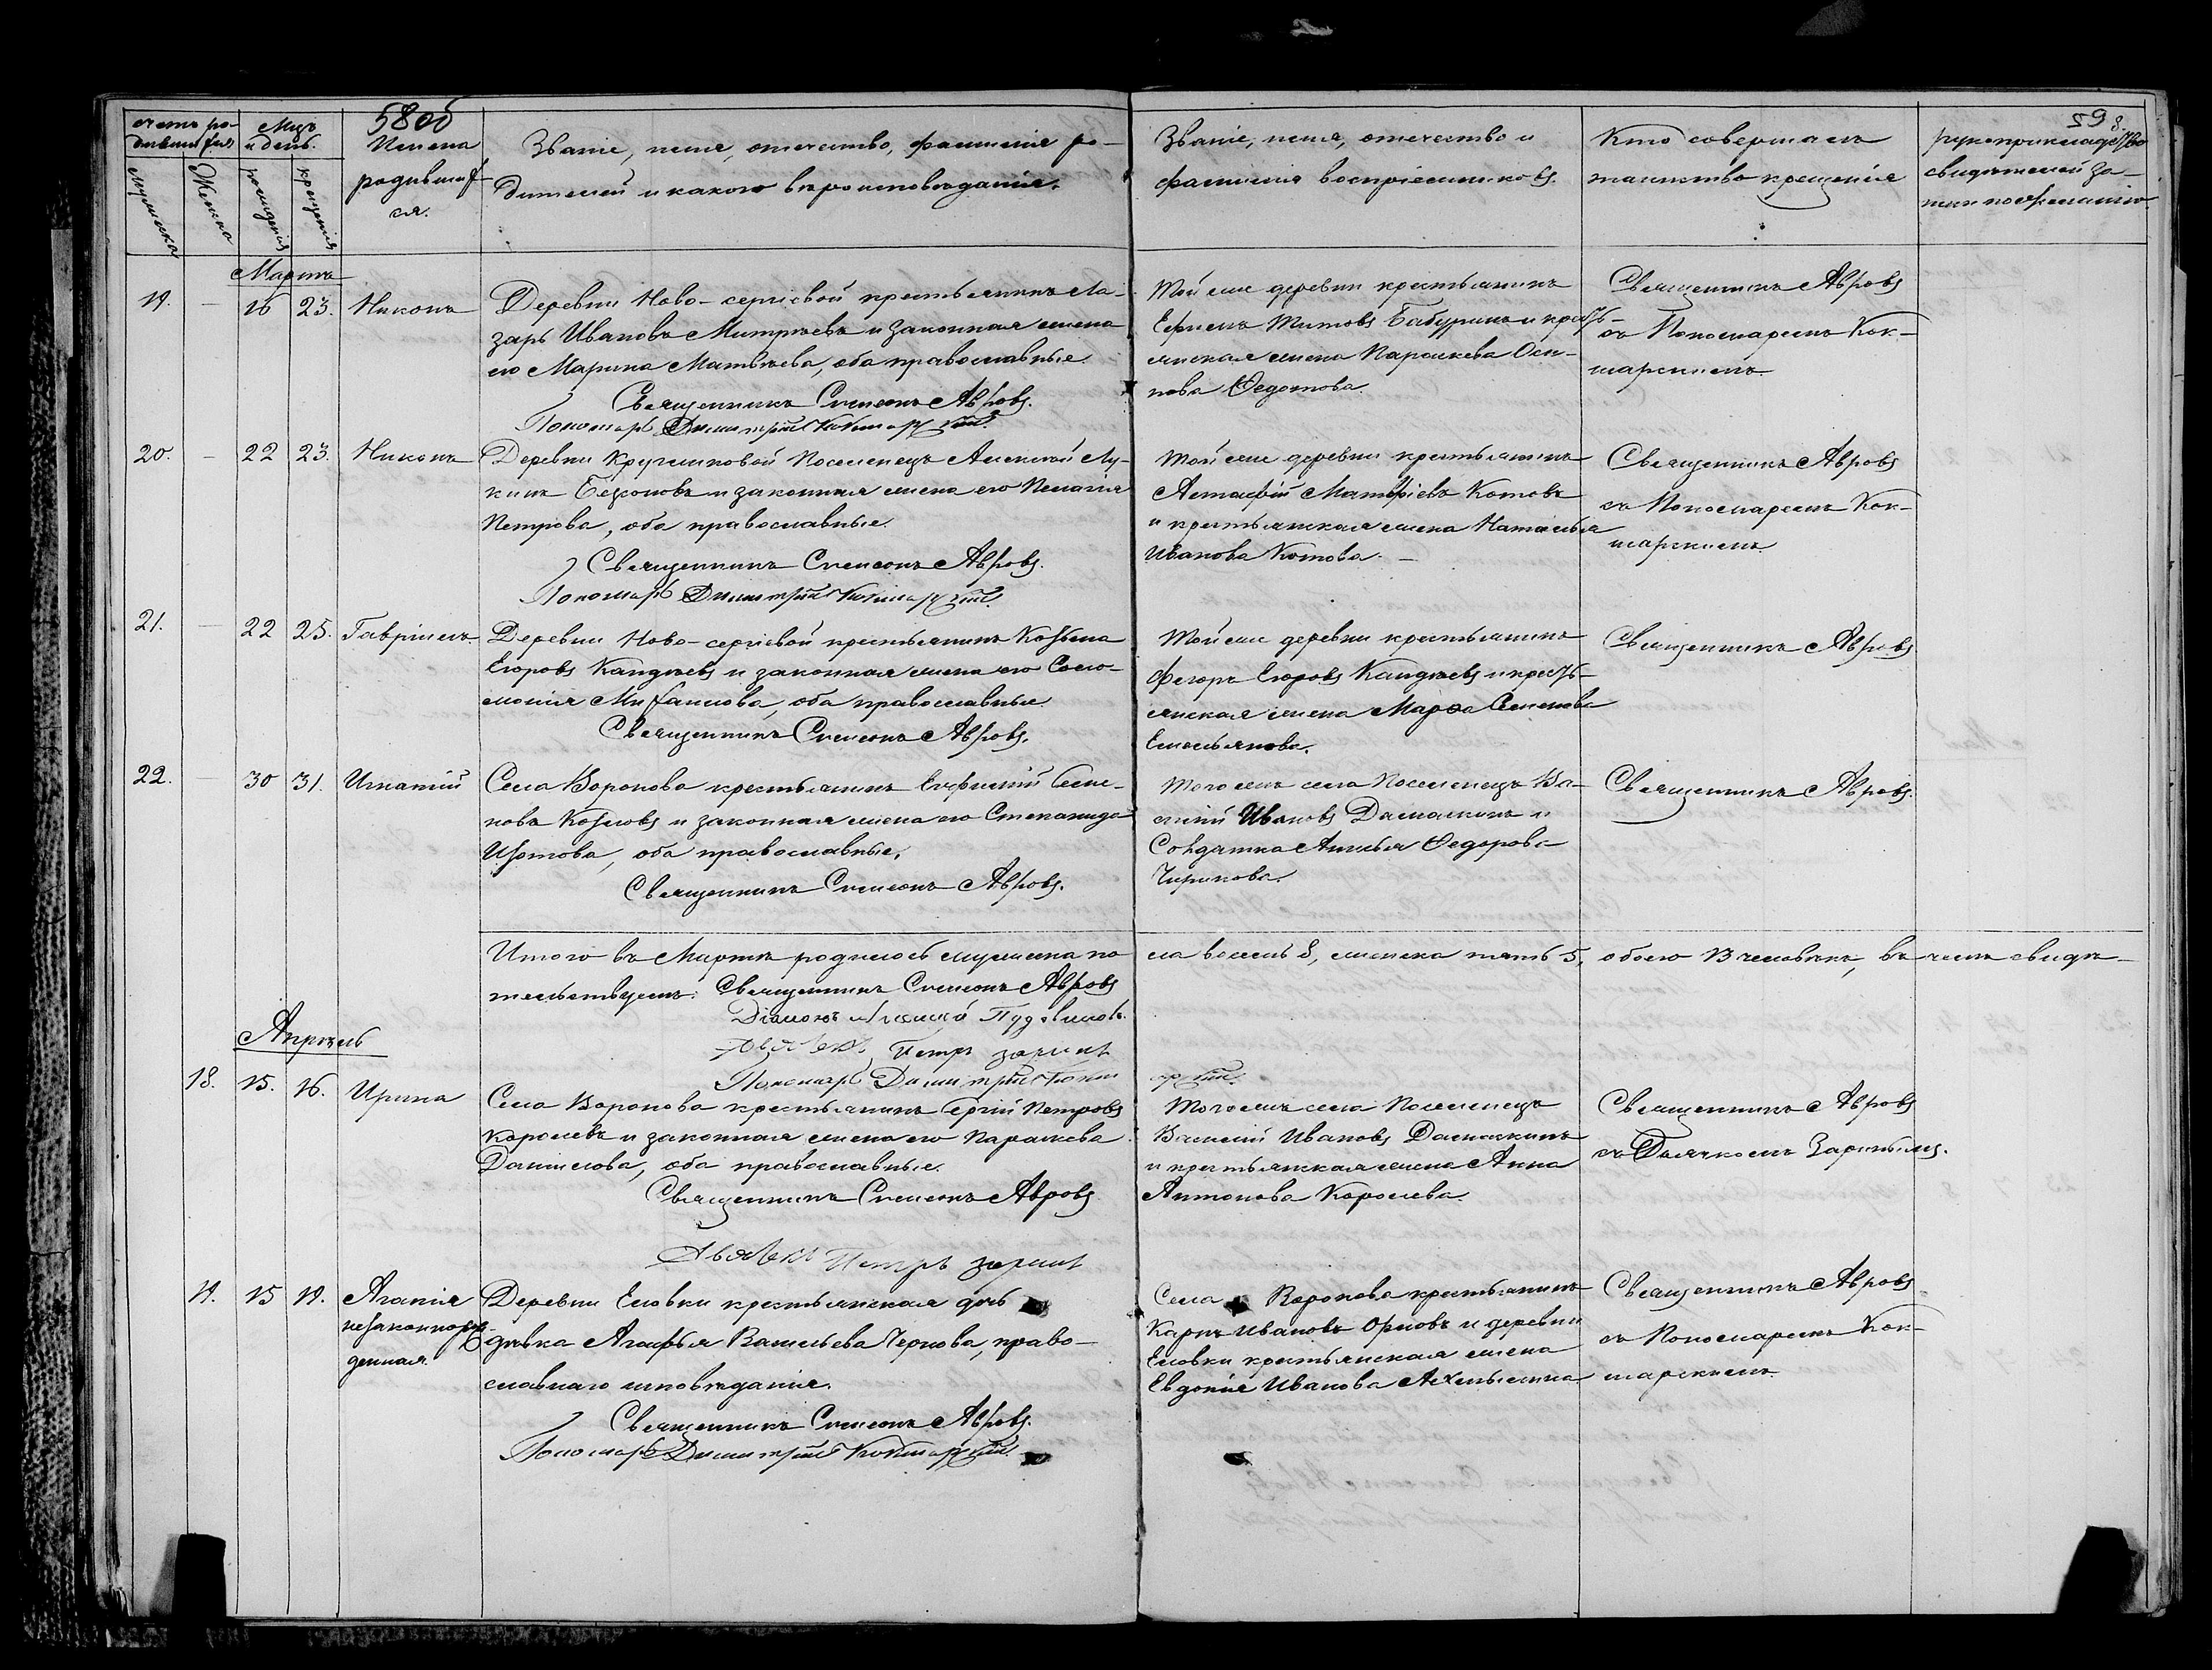 580б
59
счетъ ро-
дившихся
Мѣс.
и день.
Имена
родивших
ся.
Званіе, имя, отчество, фамилія ро-
дителей и какого вѣроисповѣданія.
Званіе, имя, отчество и
фамилія воспріемниковъ.
Кто совершалъ
таинство крещенія
рукоприкладство
свидѣтелей за-
писи по желанію.
мужеска
Женска
рожденія
крещенія
Мартъ
19. – 16 23. Никонъ
Деревни Ново-сергіевой крестьянинъ Ла-
зарь Ивановъ Митряевъ и законная жена
его Марина Матвѣева, оба православные
Священникъ Симеонъ Авровъ.
Пономарь Димитрій Кокшарскій.
Той же деревни крестьянинъ
Ефимъ Титовъ Бабуринъ и кресть-
янская жена Параскева Оси-
пова Ѳедотова.
Священникъ Авровъ
съ Пономаремъ Кок-
шарскимъ.
20. – 22 23. Никонъ
Деревни Кругликовой Поселенецъ Алексѣй Лу-
кинъ Безсоновъ и законная жена его Пелагія
Петрова, оба православные.
Священникъ Симеонъ Авровъ.
Пономарь Димитрій Кокшарскій.
Той же деревни крестьянинъ
Астафій Матвѣевъ Котовъ
и крестьянская жена Наталья
Иванова Котова. –
Священникъ Авровъ
съ Пономаремъ Кок-
шарскимъ
21. – 22 25. Гавріилъ
Деревни Ново-сергіевой крестьянинъ Козьма
Егоровъ Кандѣевъ и законная жена его Соло-
монія Михаилова, оба православные
Священникъ Симеонъ Авровъ.
Той же деревни крестьянинъ
Фегоръ Егоровъ Кандѣевъ и кресть-
янская жена Марѳа Семенова
Емельянова.
Священникъ Авровъ
22. – 30 31. Игнатій
Села Воронова крестьянинъ Евфимій Семе-
новъ Козловъ и законная жена его Степанида
Изотова, оба православные.
Священникъ Симеонъ Авровъ.
Того же села Поселенецъ Ва-
силій Ивановъ Дамаскинъ и
Солдатка Анисья Ѳедорова
Чирикова.
Священникъ Авровъ.
Итого въ Мартѣ родилось мужеска по
ла восемь 8, женска пять 5, обоего 13 человѣкъ, въ чемъ свидѣ-
тельствуемъ: Священникъ Симеонъ Авровъ
Діаконъ Алексѣй Пудовиковъ.
Дьячекъ Петръ Заринъ
Пономарь Димитрій Кокш
арскій.
Апрѣль
18. 15. 16. Ирина
Села Воронова крестьянинъ Сергій Петровъ
Королевъ и законная жена его Параскева
Данилова, оба православные.
Священникъ Симеонъ Авровъ
Дьячекъ Петръ Заринъ
Того же села Поселенецъ
Василій Ивановъ Дамаскинъ
и крестьянская жена Анна
Антонова Королева.
Священникъ Авровъ
съ Дьячкомъ Заринымъ.
19. 15 19. Агапія
незаконнорож-
денная.
Деревни Еловки крестьянская дочь
дѣвка Агафья Васильева Чернова, право-
славнаго исповѣданія.
Священникъ Симеонъ Авровъ.
Пономарь Димитрій Кокшарскій.
Села Воронова крестьянинъ
Карпъ Ивановъ Орловъ и деревни
Еловки крестьянская жена
Евдокія Иванова
Священникъ Авровъ
съ Пономаремъ Кок-
шарскимъ.